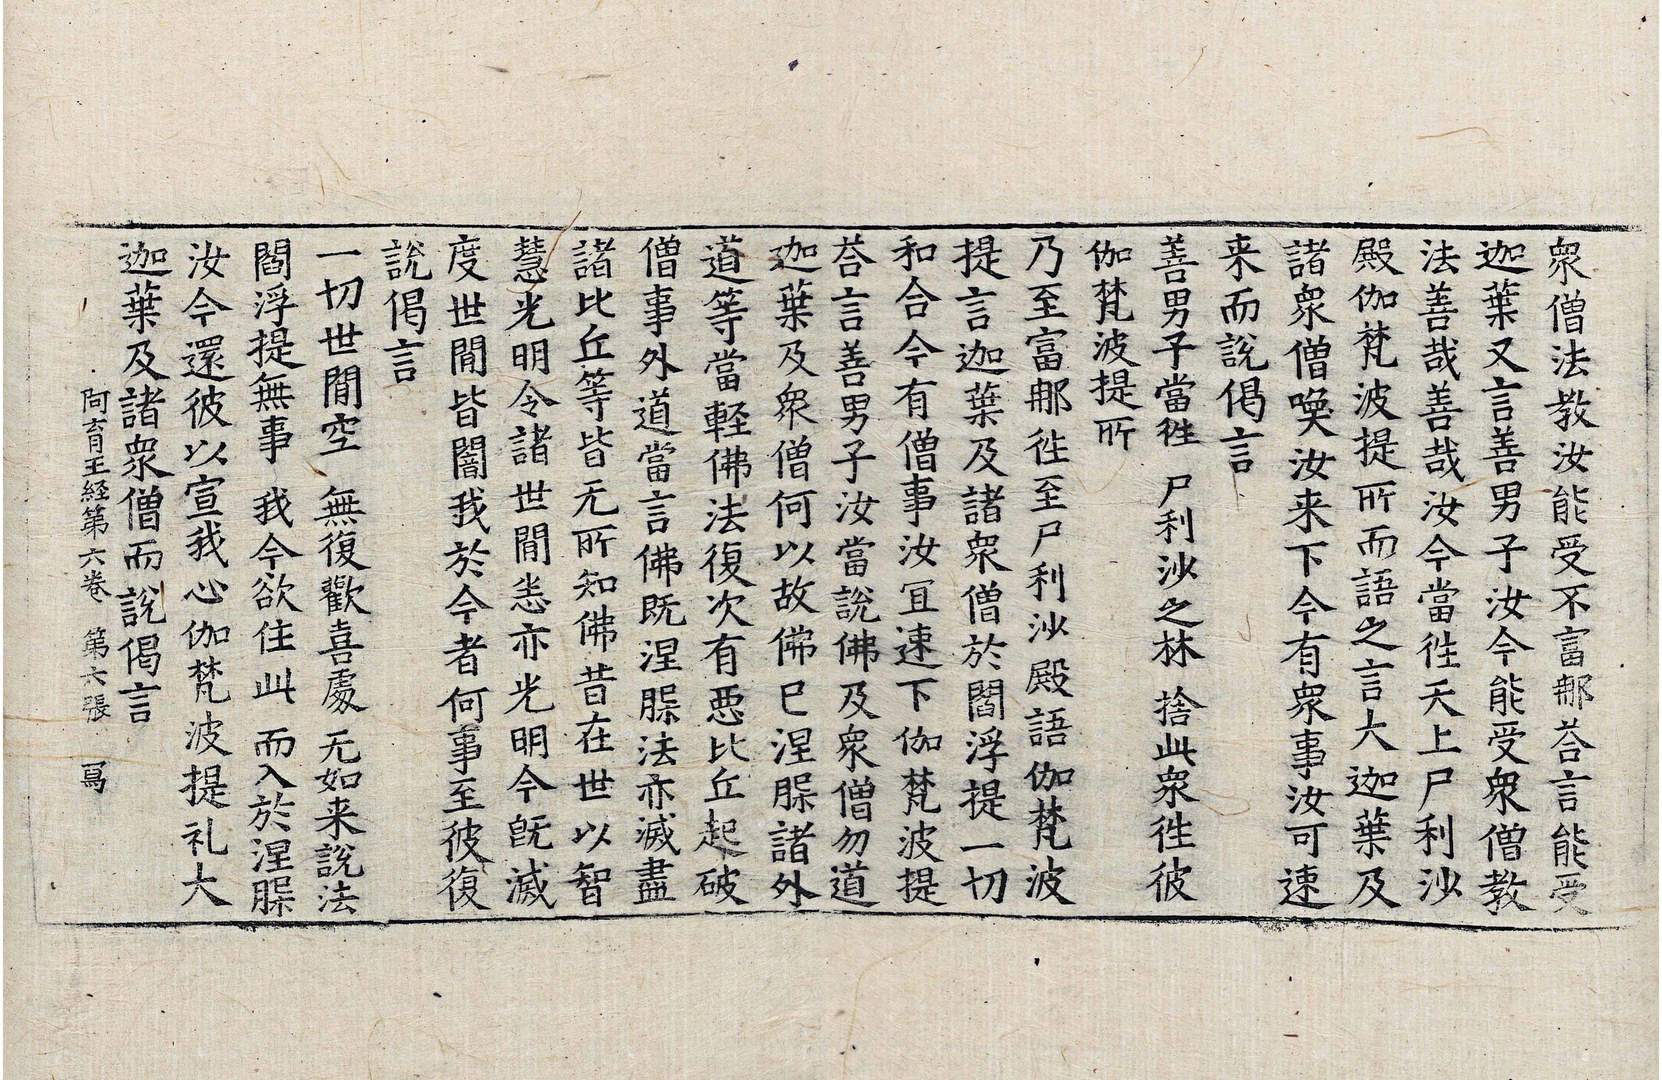 衆僧法教汝能受不富郍荅言能受
迦葉又言善男子汝今能受衆僧教
法善哉善哉汝今當徃天上尸利沙
殿伽梵波提所而語之言大迦葉及
諸衆僧喚汝来下今有衆事汝可速
来而說偈言
善男子當徃　尸利沙之林　捨此衆徃彼
伽梵波提所
乃至富郍徃至尸利沙殿語伽梵波
提言迦葉及諸衆僧於閻浮提一切
和合今有僧事汝冝速下伽梵波提
荅言善男子汝當說佛及衆僧勿道
迦葉及衆僧何以故佛巳涅槃諸外
道等當軽佛法復次有悪比丘起破
僧事外道當言佛既涅槃法亦滅盡
諸比丘等皆无所知佛昔在世以智
慧光明令諸世間悉亦光明今旣滅
度世間皆闇我於今者何事至彼復
說偈言
一切世間空　無復歡喜處　无如来說法
閻浮提無事　我今欲住此　而入於涅槃
汝今還彼以宣我心伽梵波提礼大
迦葉及諸衆僧而說偈言
阿育王経第六巻　第六張　罵